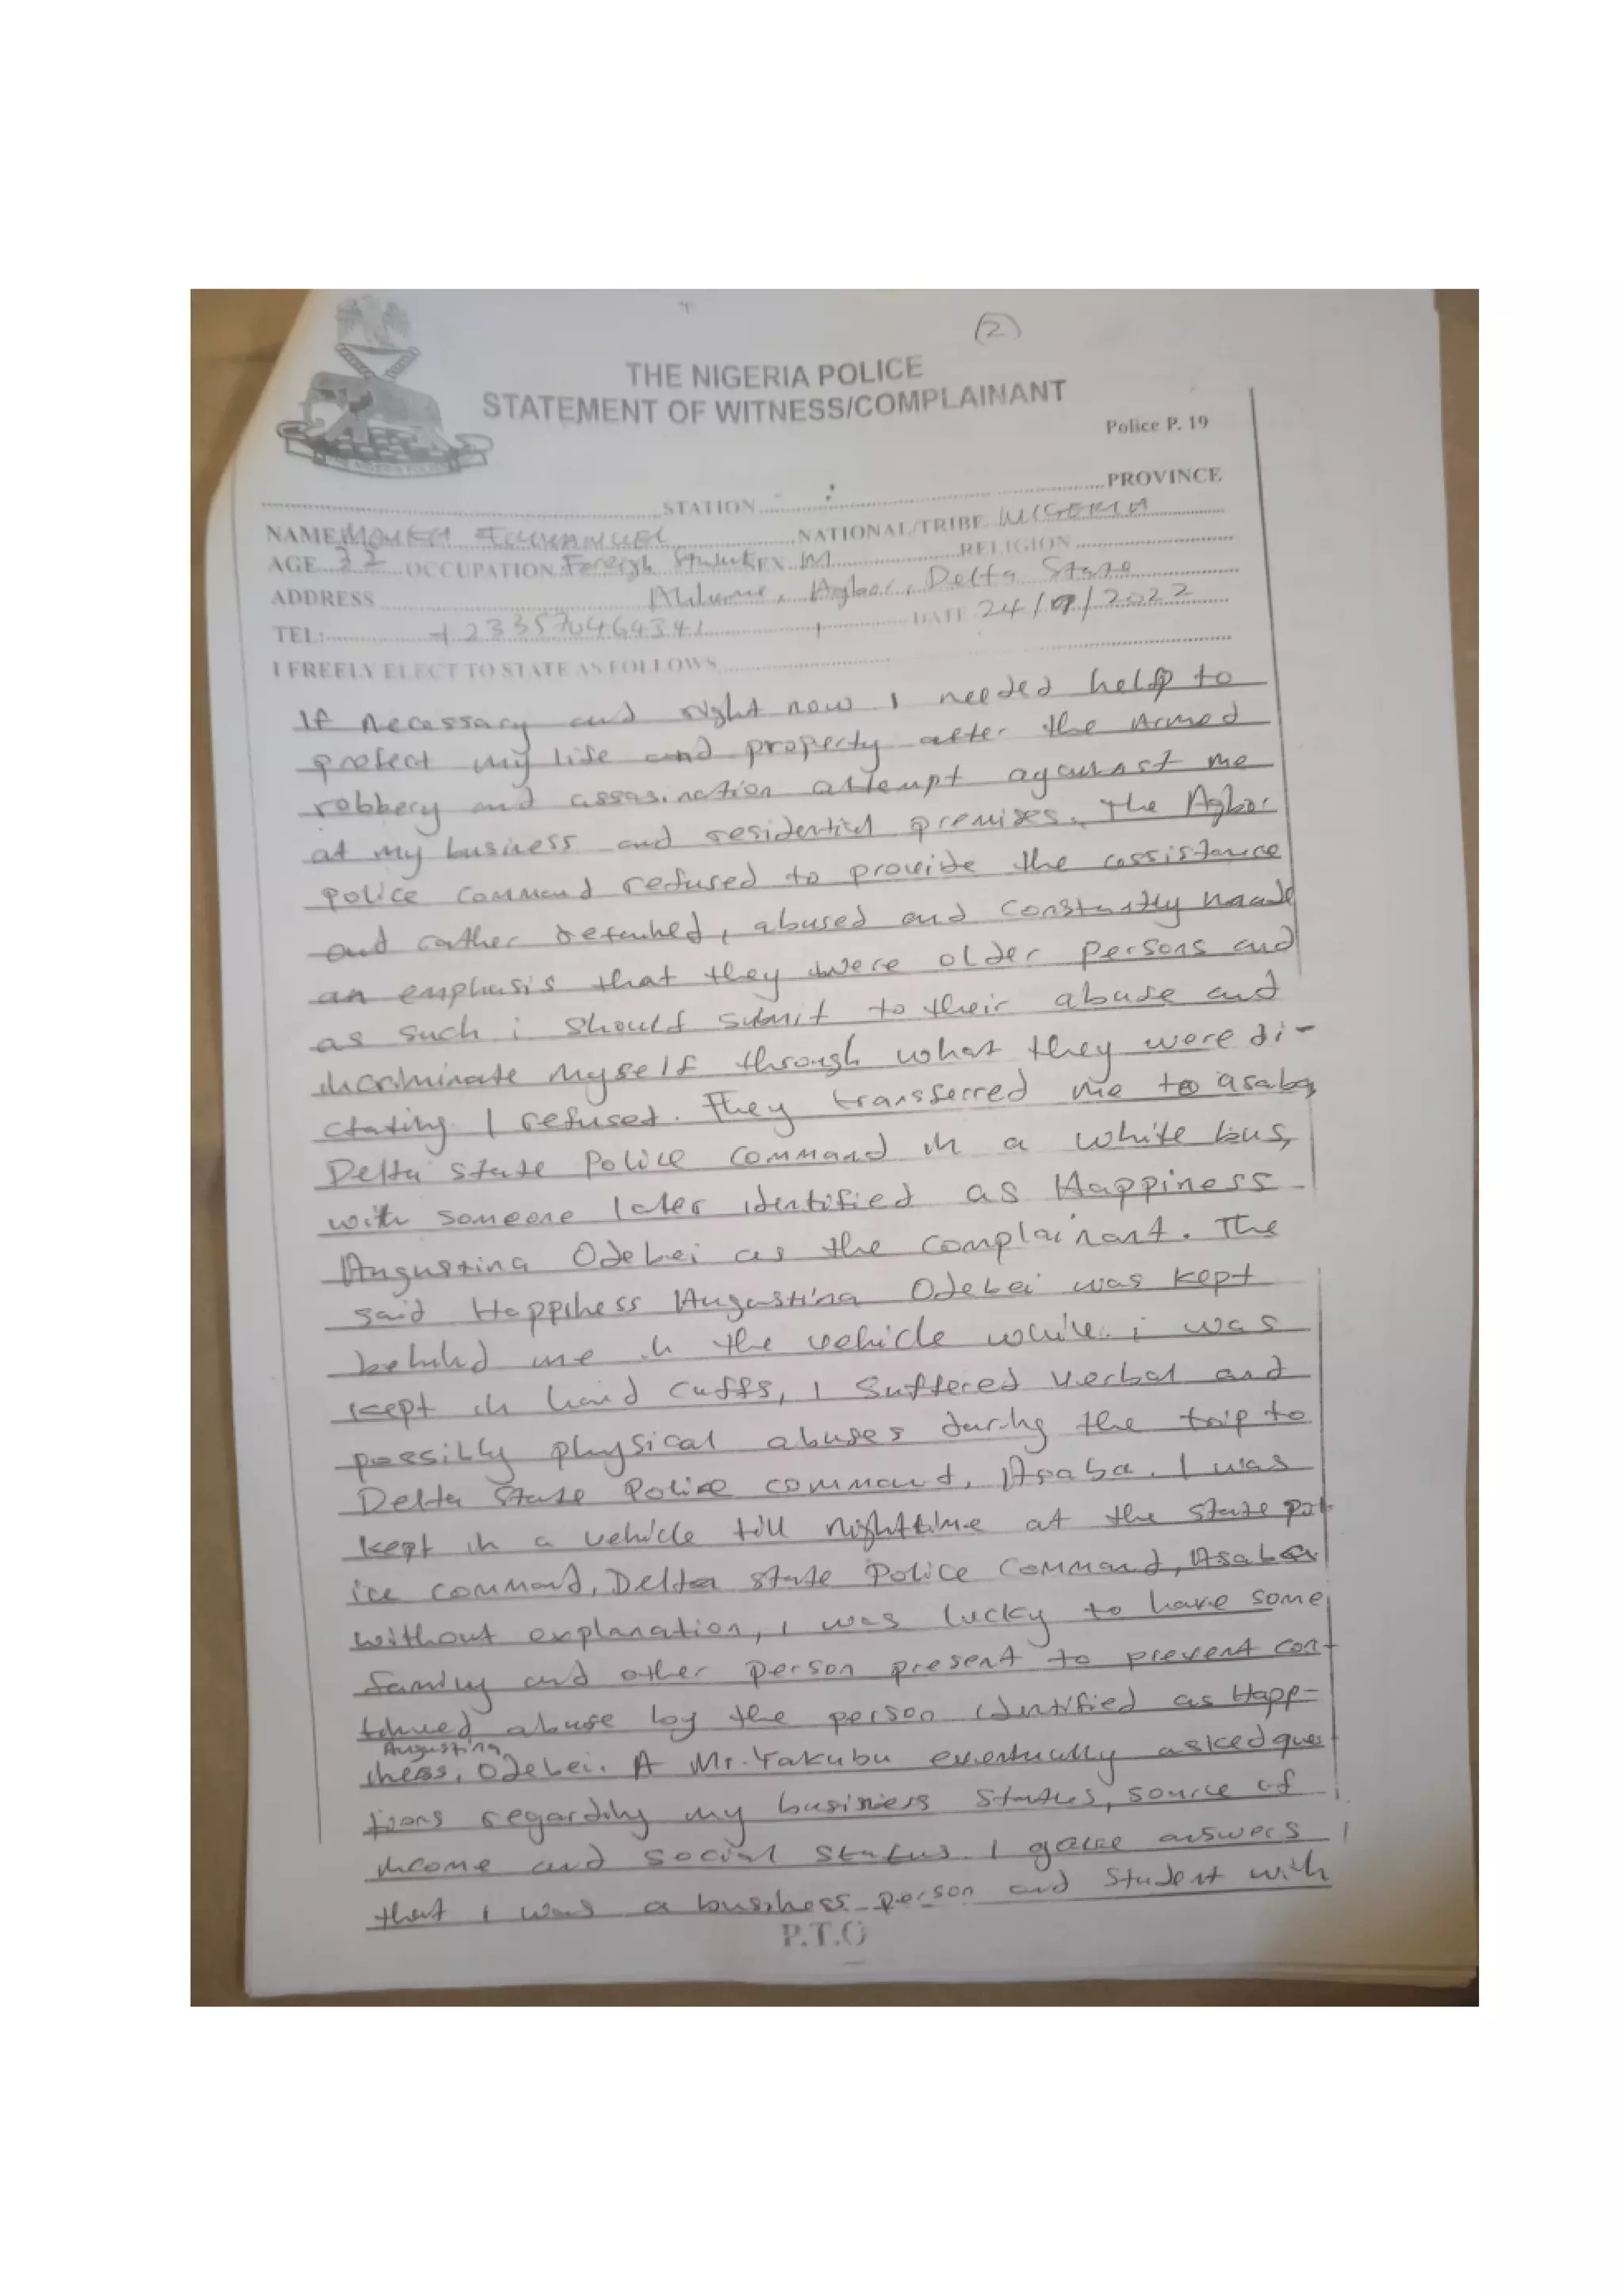 (2)
THE NIGERIA POLICE
STATEMENT OF WITNESS/COMPLAINANT
Police P. 19
STATION PROVINCE
NAME NATIONAL/TRIBE NIGERIA
AGE OCCUPATION Foreign Student SEX M RELIGION
ADDRESS Agbor, Delta State
TEL: +233570464341 DATE 24/ /2022
I FREELY ELECT TO STATE AS FOLLOWS
If necessary and right now I needed help to
protect my life and property after the Armed
robbery and assasination attempt against me
at my business and residential premises. The Agbor
police command refused to provide the assistance
and rather detained, abused and constantly made
an emphasis that they were older persons and
as such i should submit to their abuse and
incriminate myself through what they were di-
ctating I refused. They transferred me to asaba,
Delta state police command in a white bus,
with someone later identified as Happiness
Augustina Odebei as the complainant. The
said Happiness Augustina Odebei was kept
behind me in the vehicle while i was
kept in hand cuffs, I suffered verbal and
possibly physical abuses during the trip to
Delta State Police command, Asaba. I was
kept in a vehicle till nighttime at the state pol-
ice command, Delta state Police Command, Asaba
without explanation, I was lucky to have some
family and other person present to prevent con-
tinued abuse by the person identified as Happ-
Augustina
iness, Odebei. A Mr. Yakubu eventually asked ques-
tions regarding my business status, source of
income and social status. I gave answers
that I was a business person and student with
P.T.O